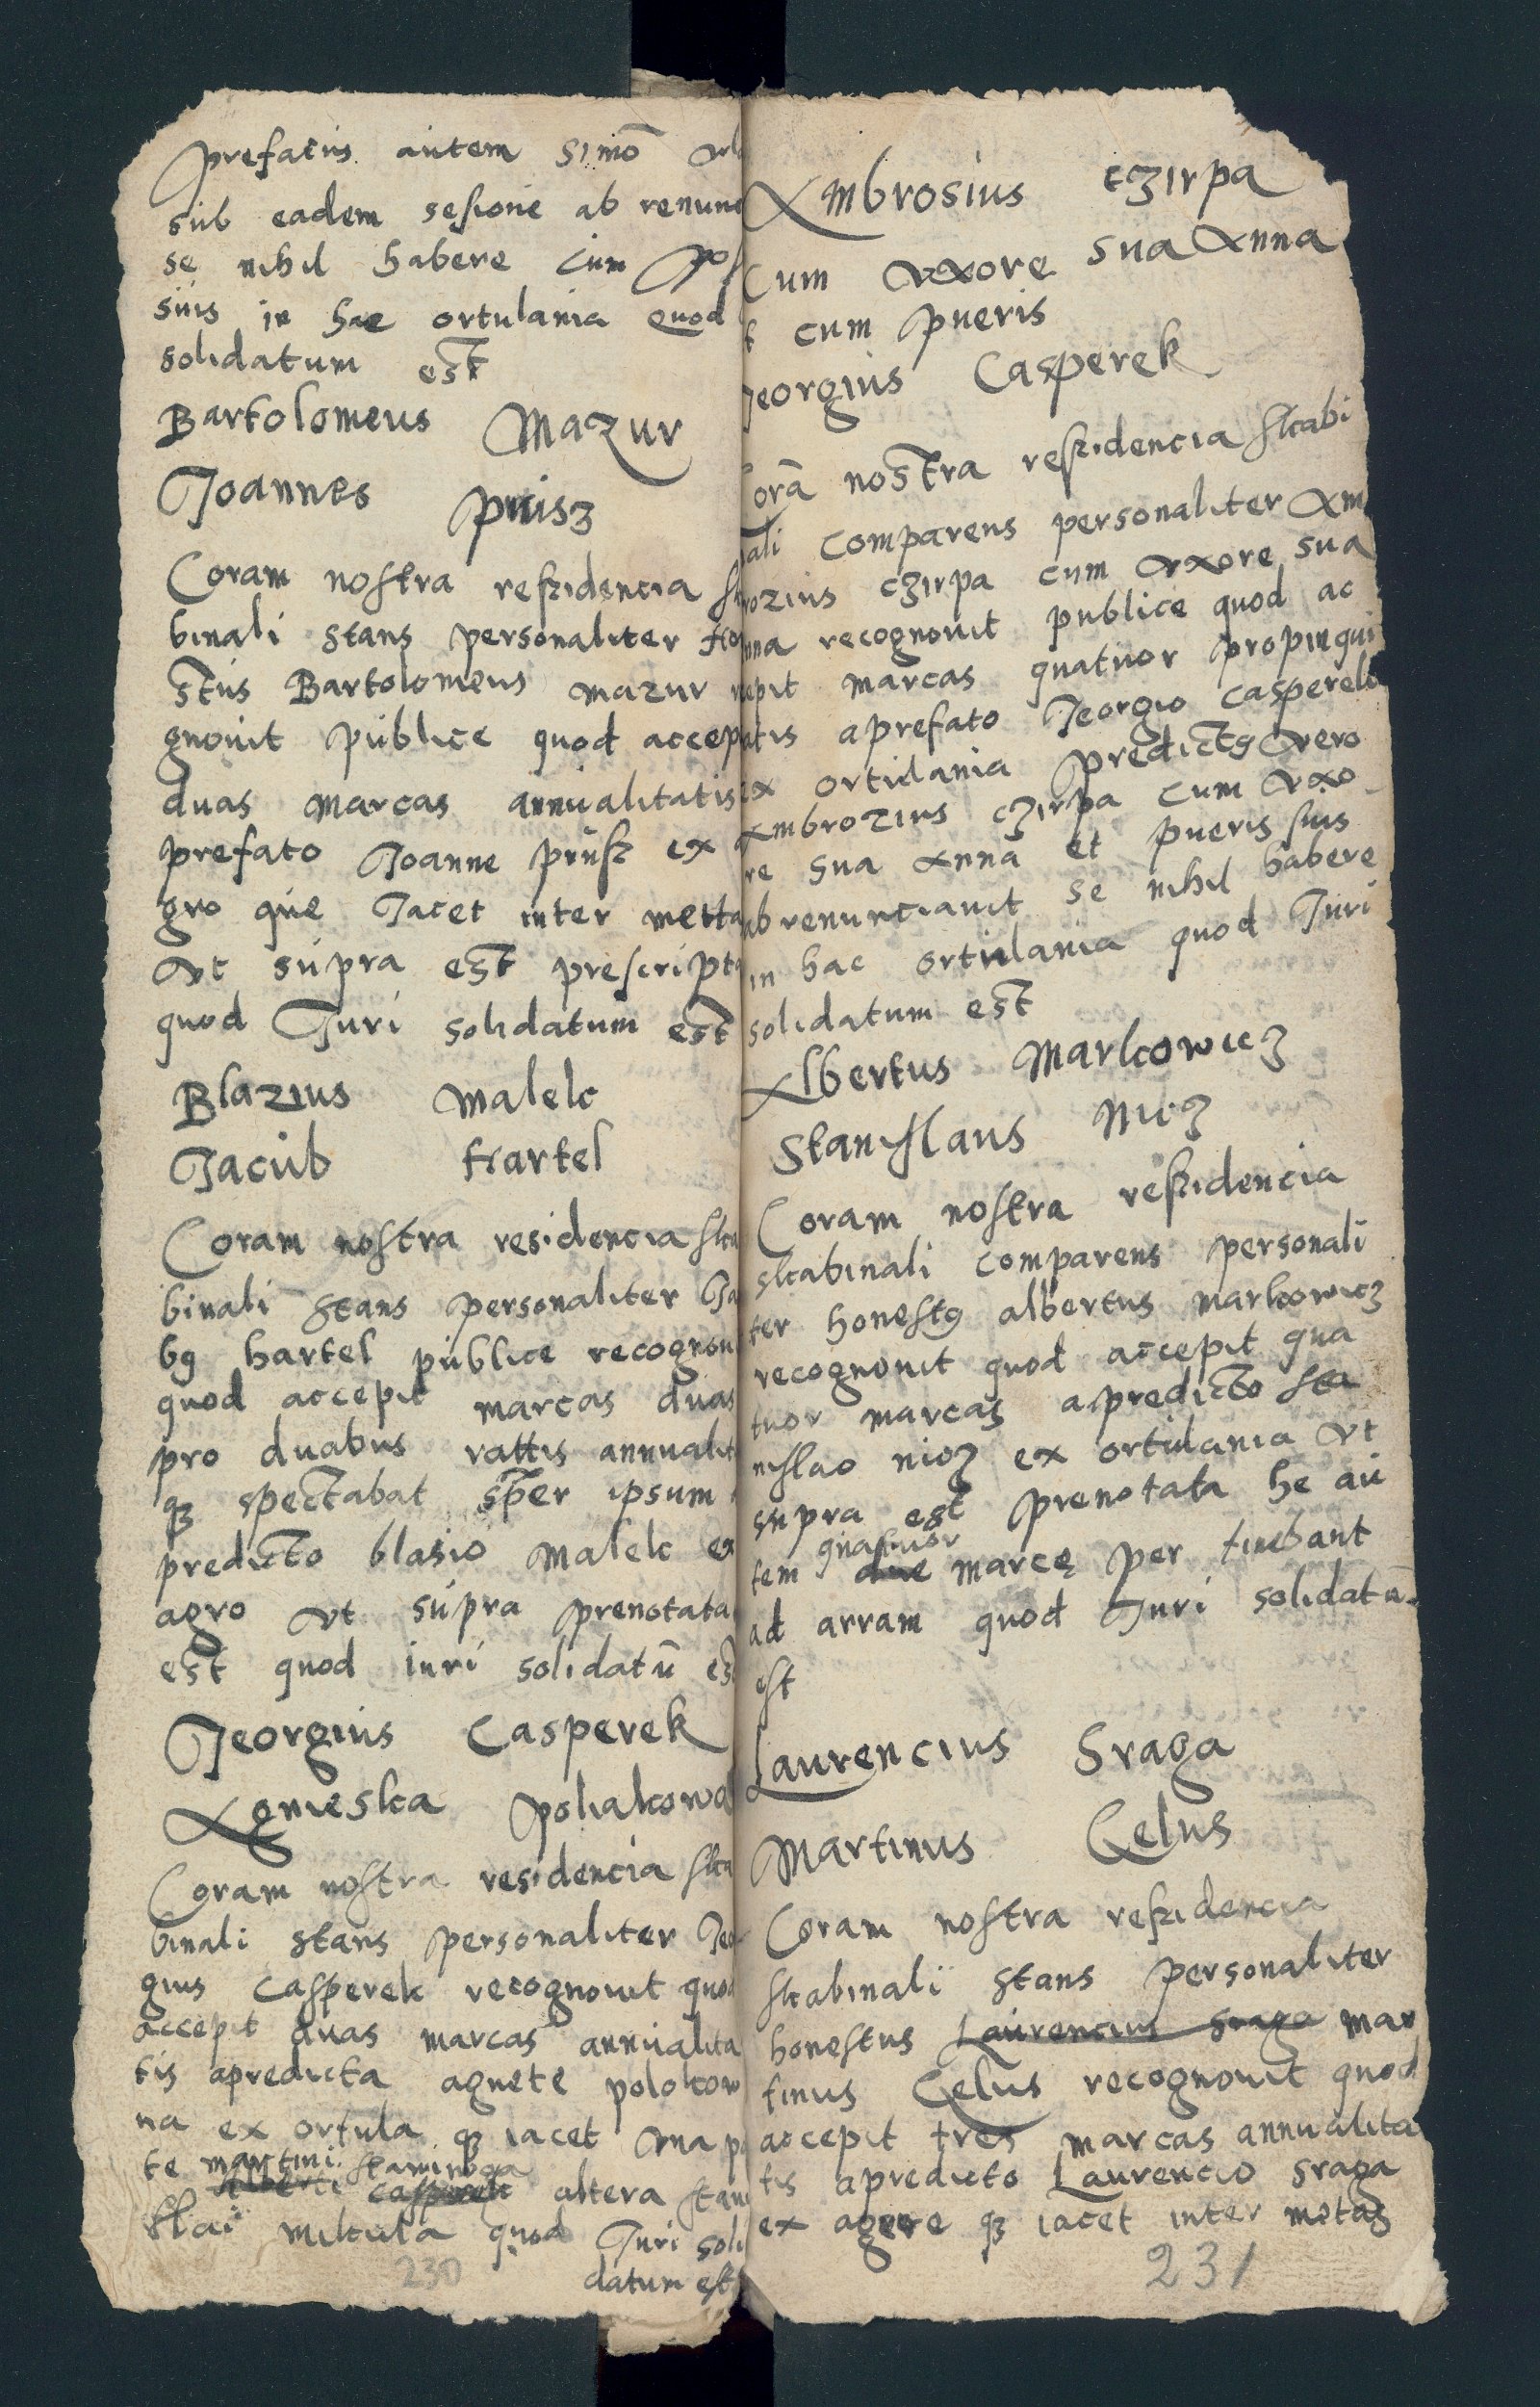 prefatus autem simō
sub eadem sesione ab renun
se nihil habere cum
suis in hac ortulania quod
solidatum est
Bartolomeus Mazur
Joannes pruisz
Coram nostra reszidencia
binali stans personaliter
stus Bartolomeus mazur
gnouit publice quod accep
duas marcas annualitatis
prefato Joanne prusz ex
gro que Jacet inter metta
vt supra est prescripta
quod Juri solidatum est
Blazius Malek
Jacub hartel
Coram nostra residencia ska
binali stans personaliter Ja
bꝯ hartel publice recognou
quod accepit marcas duas
pro duabus rattis annualit
qꝫ spectabat super ipsum
predicto blasio Malek ex
agro vt supra prenotata
est quod iuri solidatū es
Jeorgius Casperek
Agnieska poliakowa
Coram nostra residencia ska
binali stans personaliter Jeo
gius Casperek recognouit quod
accepit duas marcas annualita
tis apredicta agnete polokow
na ex ortula qꝫ iacet vna p
te martini staminoga
Alberti casperek altera stani
slai mikula quod Juri soli
datum est
230
Ambrosius czirpa
Cum vxore sua Anna
t cum pueris
Jeorgius Casperek
Corā nostra reszidencia skabi
nali comparens personaliter Am
rozius czirpa cum vxore sua
nna recognouit publice quod ac
cepit marcas quatuor propinqui
atis aprefato Jeorgio casperek
ex ortulania predictꝯ vero
Ambrozius czirpa cum vxo
re sua Anna et pueris suis
ab renunciauit se nihil habere
in hac ortulania quod Juri
solidatum est
Albertus Markowicz
Stanislaus Nicz
Coram nostra reszidencia
skabinali comparens personali
ter honestꝯ albertus markowicz
recognouit quod accepit qua
tuor marcas apredicto sta
nislao nicz ex ortulania vt
supra est prenotata he au
quatuor
tem due marcę per tinebant
ad arram quod Juri solidatū
est
Laurencius Sraga
Martinus Celus
Coram nostra reszidencia
skabinali stans personaliter
honestus Laurencius sraga mar
tinus Celus recognouit quod
accepit tres marcas annualita
tis apredicto Laurencio sraga
ex agere qꝫ iacet inter metas
231